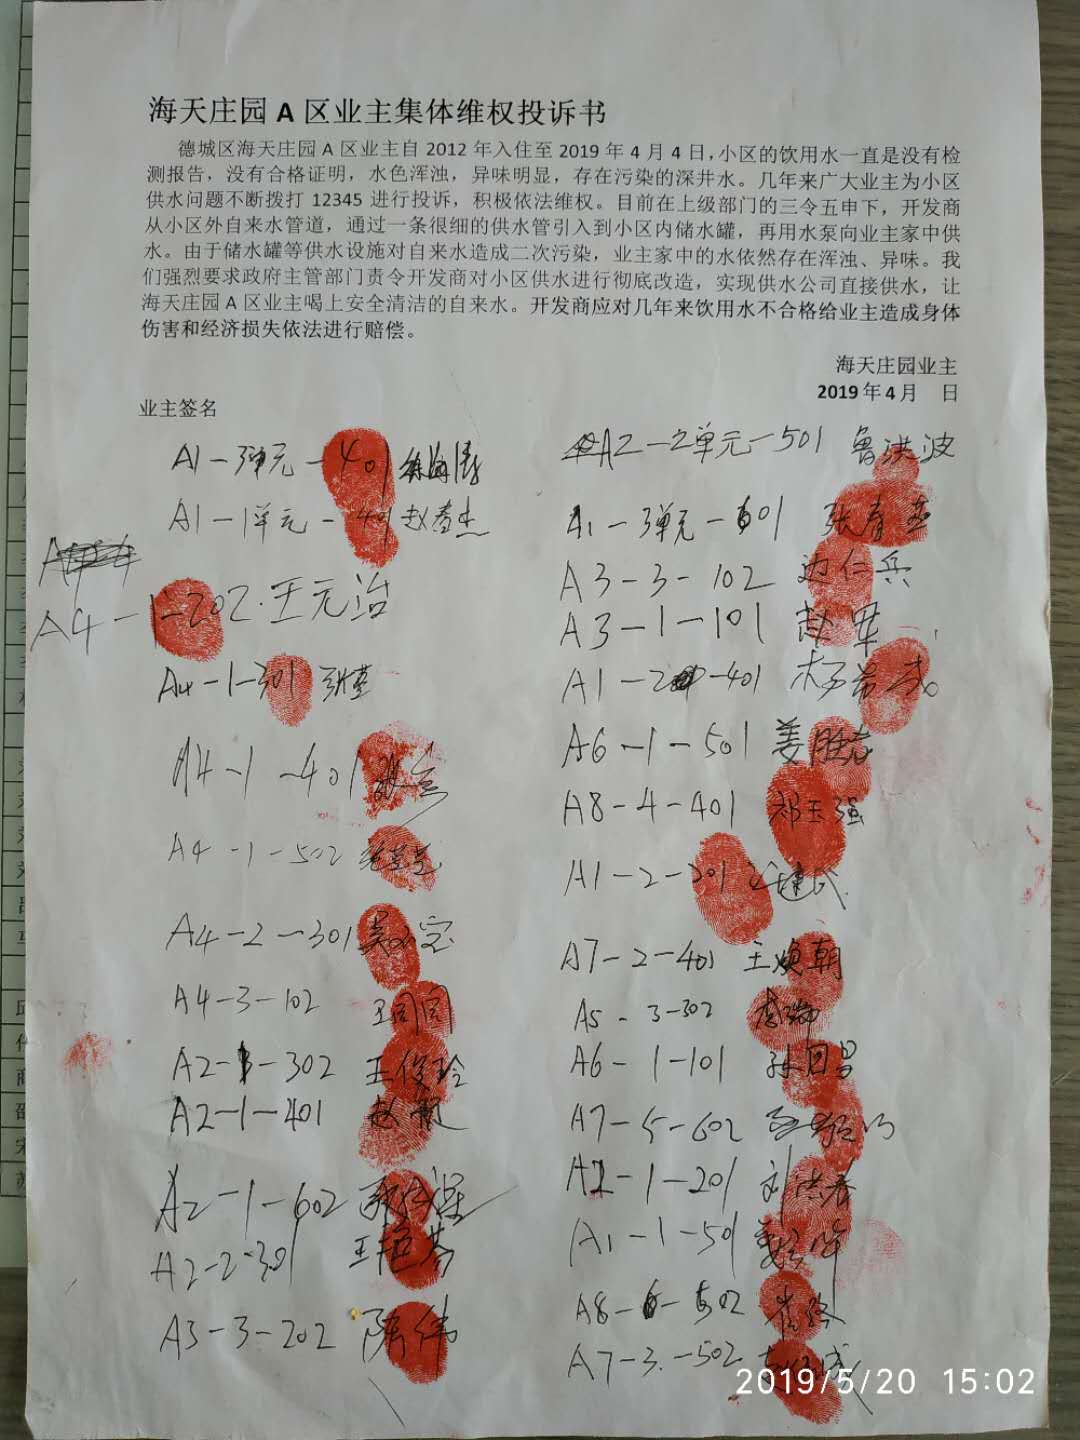 海天庄园 A 区业主集体维权投诉书
德城区海天庄园 A 区业主自 2012 年入住至 2019 年 4 月 4 日，小区的饮用水一直是没有检
测报告，没有合格证明，水色浑浊，异味明显，存在污染的深井水。几年来广大业主为小区
供水问题不断拨打 12345 进行投诉，积极依法维权。目前在上级部门的三令五申下，开发商
从小区外自来水管道，通过一条很细的供水管引入到小区内储水罐，再用水泵向业主家中供
水。由于储水罐等供水设施对自来水造成二次污染，业主家中的水依然存在浑浊、异味。我
们强烈要求政府主管部门责令开发商对小区供水进行彻底改造，实现供水公司直接供水，让
海天庄园 A 区业主喝上安全清洁的自来水。开发商应对几年来饮用水不合格给业主造成身体
伤害和经济损失依法进行赔偿。
海天庄园业主
2019 年 4 月 日
业主签名
A1-3单元-401
A1-1单元-401 赵春杰
A4-1-202.王元治
A4-1-301
A4-1-401
A4-1-502
A4-2-301
A4-3-102 王同同
A2-1-302 王俊玲
A2-1-401 赵
A2-1-602
A2-2-301 王艳琴
A3-3-202 隋伟
A2-2单元-501 鲁洪波
A1-3单元-601 张春燕
A3-3-102 边仁兵
A3-1-101 赵军
A1-2-401
A6-1-501 姜胜
A8-4-401 祁玉强
A1-2-301
A7-2-401 王焕朝
A5-3-302 李瑞
A6-1-101 孙日昌
A7-5-602
A2-1-201 刘洪春
A1-1-501
A8-6-502
A7-3-502
2019/5/20 15:02